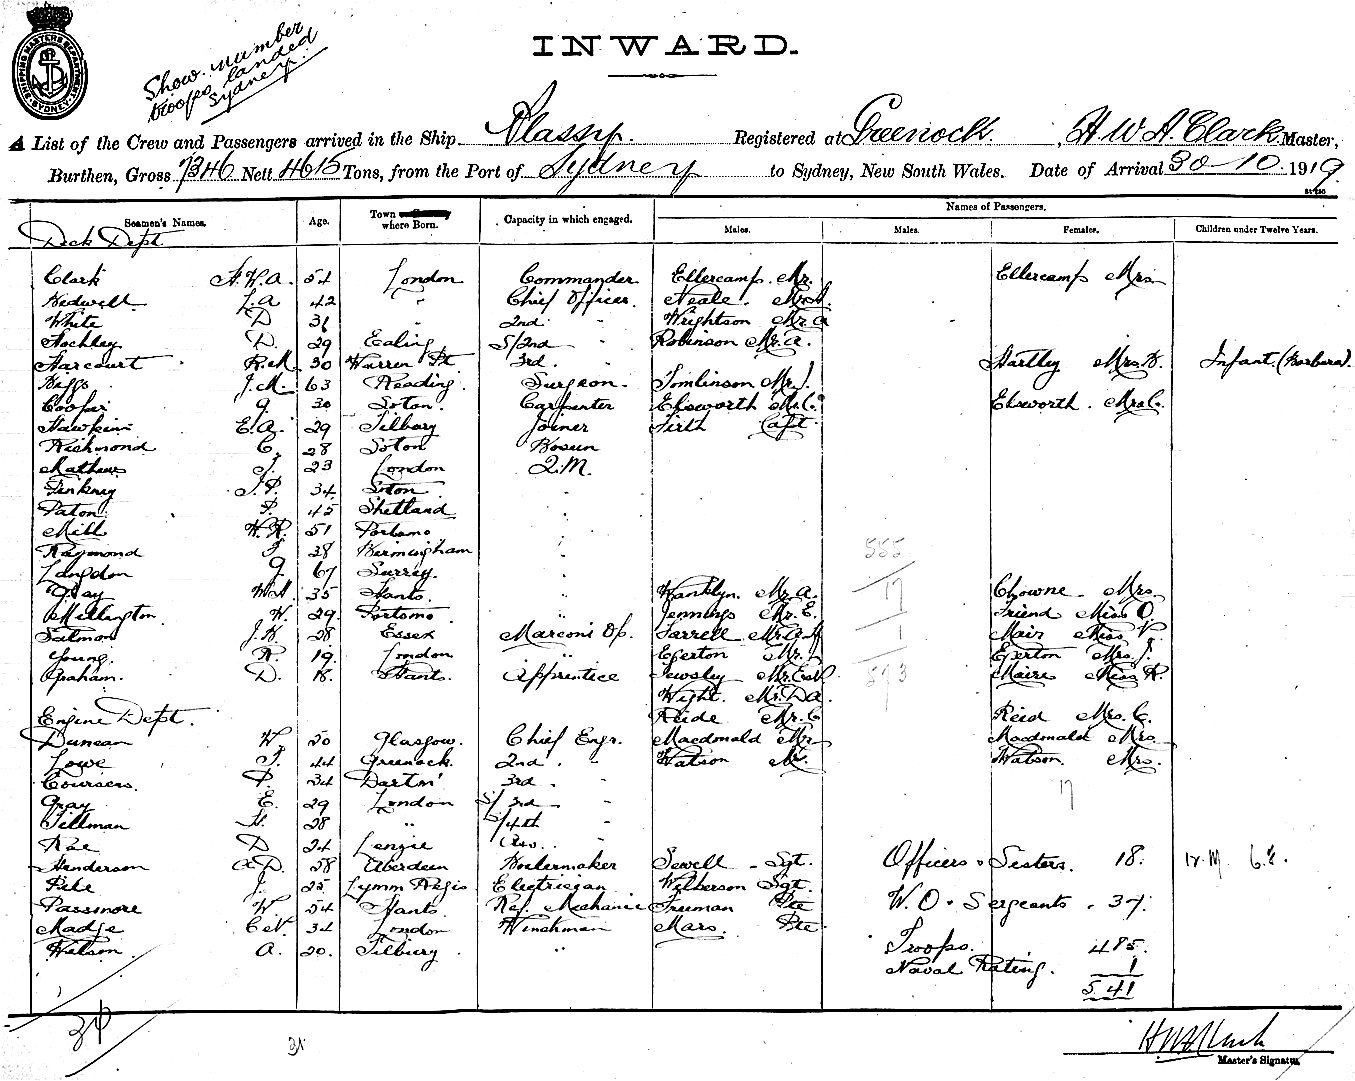 SHIPPING MASTERS DEPARTMENT SYDNEY
Show number
troops landed
Sydney.
INWARD.
A List of the Crew and Passengers arrived in the Ship Plassy. Registered at Greenock. , H. W. A. Clark Master,
Burthen, Gross 7346 Nett 4615 Tons, from the Port of Sydney to Sydney, New South Wales. Date of Arrival 30-10-1919
Names of Passengers.
Seamen's Names. Age. Town where Born. Capacity in which engaged. Males. Males. Females. Children under Twelve Years.
Deck Dept.
Clark H.W.A. 54 London Commander Ellercamp Mr. Ellercamp Mrs
Bidwell L.A 42 " Chief Officer. Neale. Mr A.
White D 31 2nd " Wrightson Mr. A
Hockley D. 29 Ealing S/2nd " Robinson Mr. A.
Harcourt R.M. 30 Warren Pt 3rd. " Hartley Mrs. B. Infant (Barbara).
Biggs J.M. 63 Reading. Surgeon. Tomlinson Mr. J.
Cooper G. 30 Soton. Carpenter Ebsworth Mr. C. Ebsworth. Mrs C.
Hawkins E.A. 29 Tilbury Joiner Firth Capt.
Richmond C. 28 Soton Bosun
Mathews J. 23 London Q.M.
Pinkney J.P. 34 Soton "
Paton P. 45 Shetland "
Mill W.R. 51 Portsmo "
Raymond J 38 Birmingham "
555
Langdon G. 67 Surrey. "
Gray W.A. 35 Hants. " Wanklyn. Mr. A. 17 Chowne Mrs.
Millington. W. 29. Portsmo " Jennings Mr. E. Friend Miss O.
Salmon J.H. 28 Essex Marconi Op. Farrell Mr. A. H 1 Mair Miss V.
Young. R. 19. London " Egerton Mr. J. Egerton Mrs. J.
Graham. D. 18. Hants. Apprentice Tewsley Mr. 573 Maire Miss R.
Wight. Mr. D.A.
Engine Dept. Reide Mr. C Reid Mrs. C.
Duncan W. 50 Glasgow. Chief Engr. Macdonald Mr Macdonald Mrs
Lowe J. 44 Greenock. 2nd. " Watson Mr. Watson. Mrs.
Coursens. P. 34 Dartm' 3rd. "
17
Gray E. 29 London S/3rd "
Tillman H. 28 " S/4th "
Rae D 24 Lenzie
Henderson A.D. 58 Aberdeen Boilermaker Sewell Sgt. Officers & Sisters. 18.
Pike J. 25 Lymm Regis Electrician Wilberson Sgt.
Passmore W. 54 Hants Ref. Mechanic Freeman Pte W.O. & Sergeants. 37.
Madge C.V. 34 London Winchman Mars. Pte.
Watson. A. 20. Tilbury " Troops. 485.
Naval Rating. 1
541
34
31
H W A Clark
Master's Signature